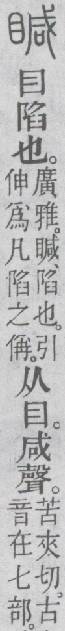 䁍
目陷也。
廣雅。䁍、陷也。引
伸爲凡陷之偁。
从目。咸聲。
苦夾切。古
音在七部。